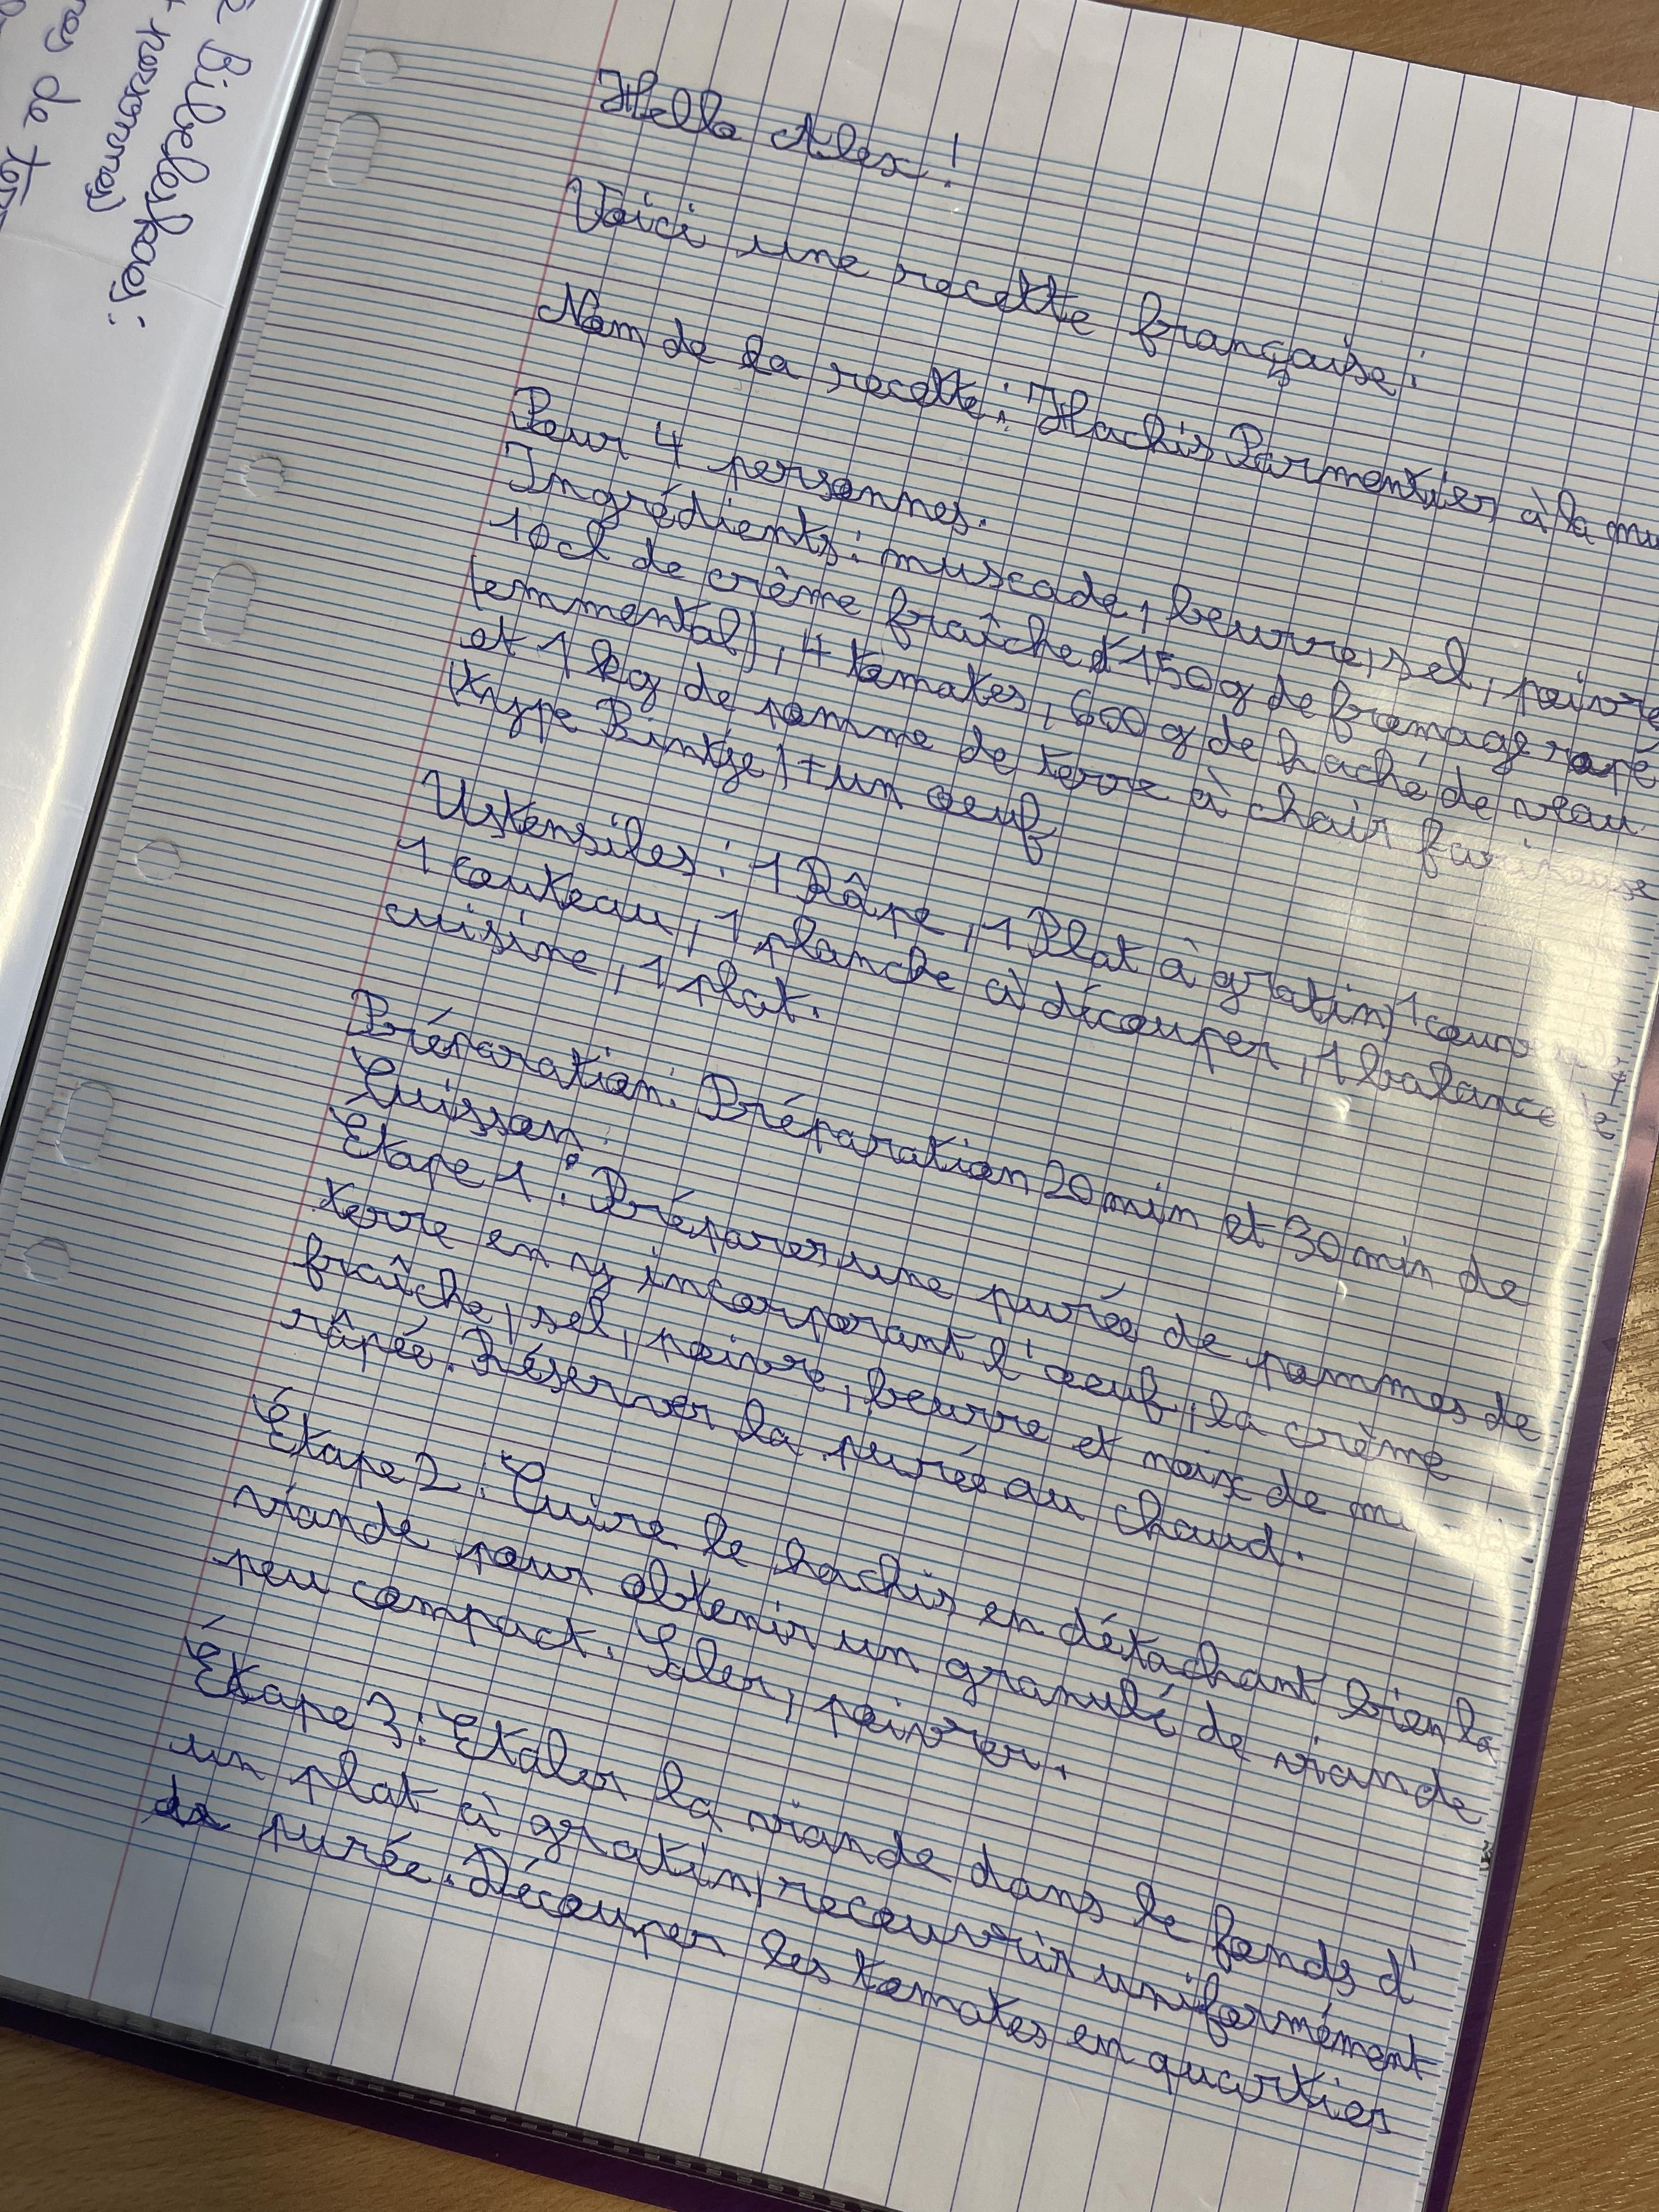 Bibeleskaes:
personnes)
de
Hello Alex !
Voici une recette française :
Nom de la recette : Hachis Parmentier à la
Pour 4 personnes.
Ingrédients : muscade, beurre, sel, poivre
10cl de crème fraîche et 150g de fromage rapé
(emmental), 4 tomates, 600 g de haché de veau
et 1 kg de pomme de terre à chair farineuse
(type Bintje) + un oeuf
Ustensiles : 1 Râpe, 1 Plat à gratin, 1
1 couteau, 1 planche à découper, 1 balance de
cuisine, 1 plat.
Préparation : Préparation 20 min et 30 min de
Cuisson.
Etape 1 : Préparer une purée de pommes de
terre en y incorporant l'oeuf, la crème
fraîche, sel, poivre, beurre et noix de
râpée. Réserver la purée au chaud.
Étape 2 : Cuire le hachis en détachant bien la
viande pour obtenir un granulé de viande
peu compact. Saler, poivrer.
Étape 3 : Etaler la viande dans le fonds d'
un plat à gratin, recouvrir uniformément
de purée. Découper les tomates en quartier